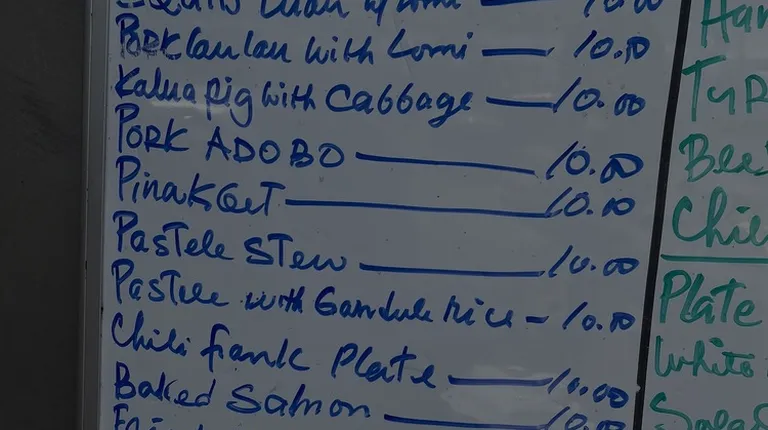 Pork lau lau with Lomi — 10.00
Kalua pig with Cabbage — 10.00
Pork ADOBO — 10.00
PinakGeT — 10.00
Pastele Stew — 10.00
Pastele with Gandule rice - 10.00
Chili frank Plate — 10.00
Baked Salmon — 10.00
Plate
White